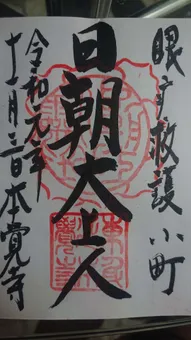 眼病救護 小町
日朝大上人
令和元年
十一月三日 本覚寺